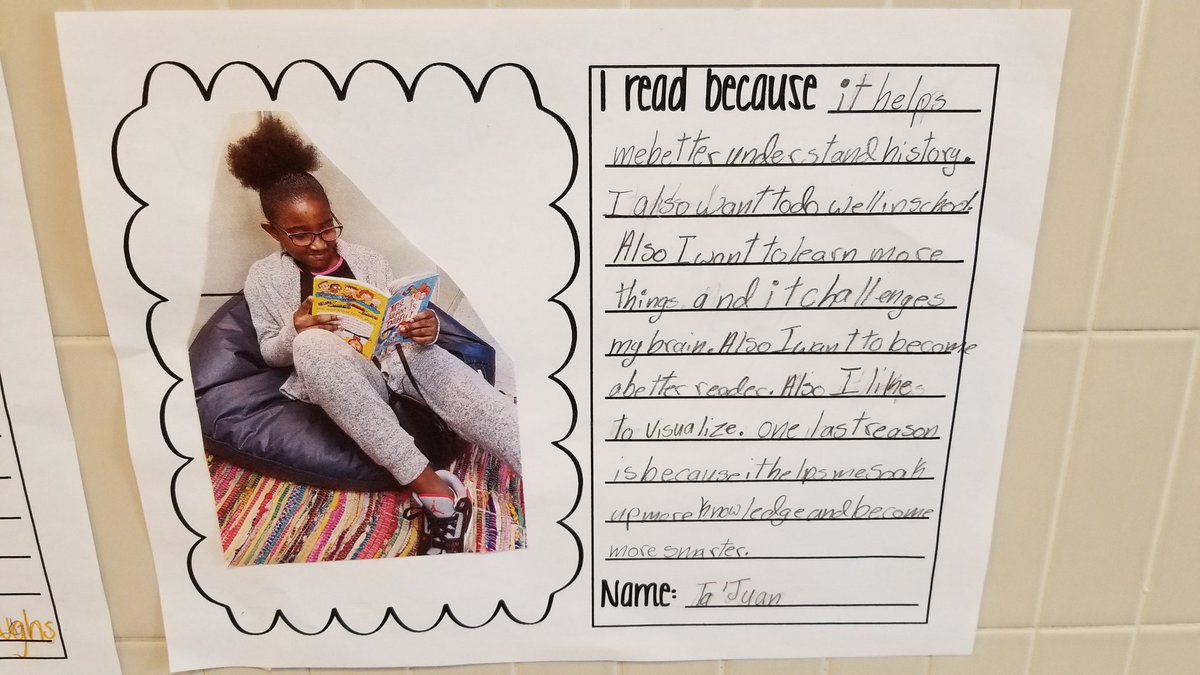 I read because it helps
me better understand history.
I also want to do well in school.
Also I want to learn more
things and it challenges
my brain. Also I want to become
a better reader. Also I like
to visualize. one last reason
is because it helps me soak
up more knowledge and become
more smarter.
Name: Ta'Juan
ughs